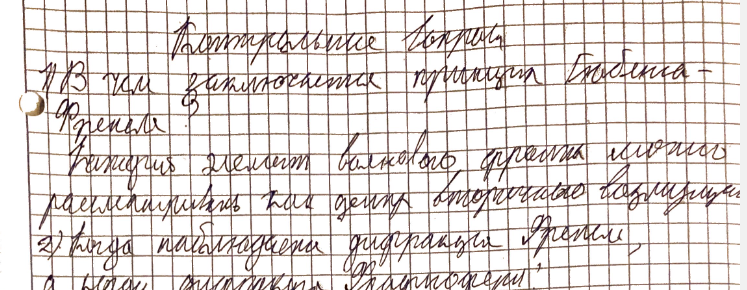 Контрольные вопросы
1) В чем заключается принцип Гюйгенса-
Френеля?
Каждый элемент волнового фронта можно
рассматривать как центр вторичного возмущен
2) Когда наблюдается дифракция Френеля,
а когда дифракция Фраунгофера?